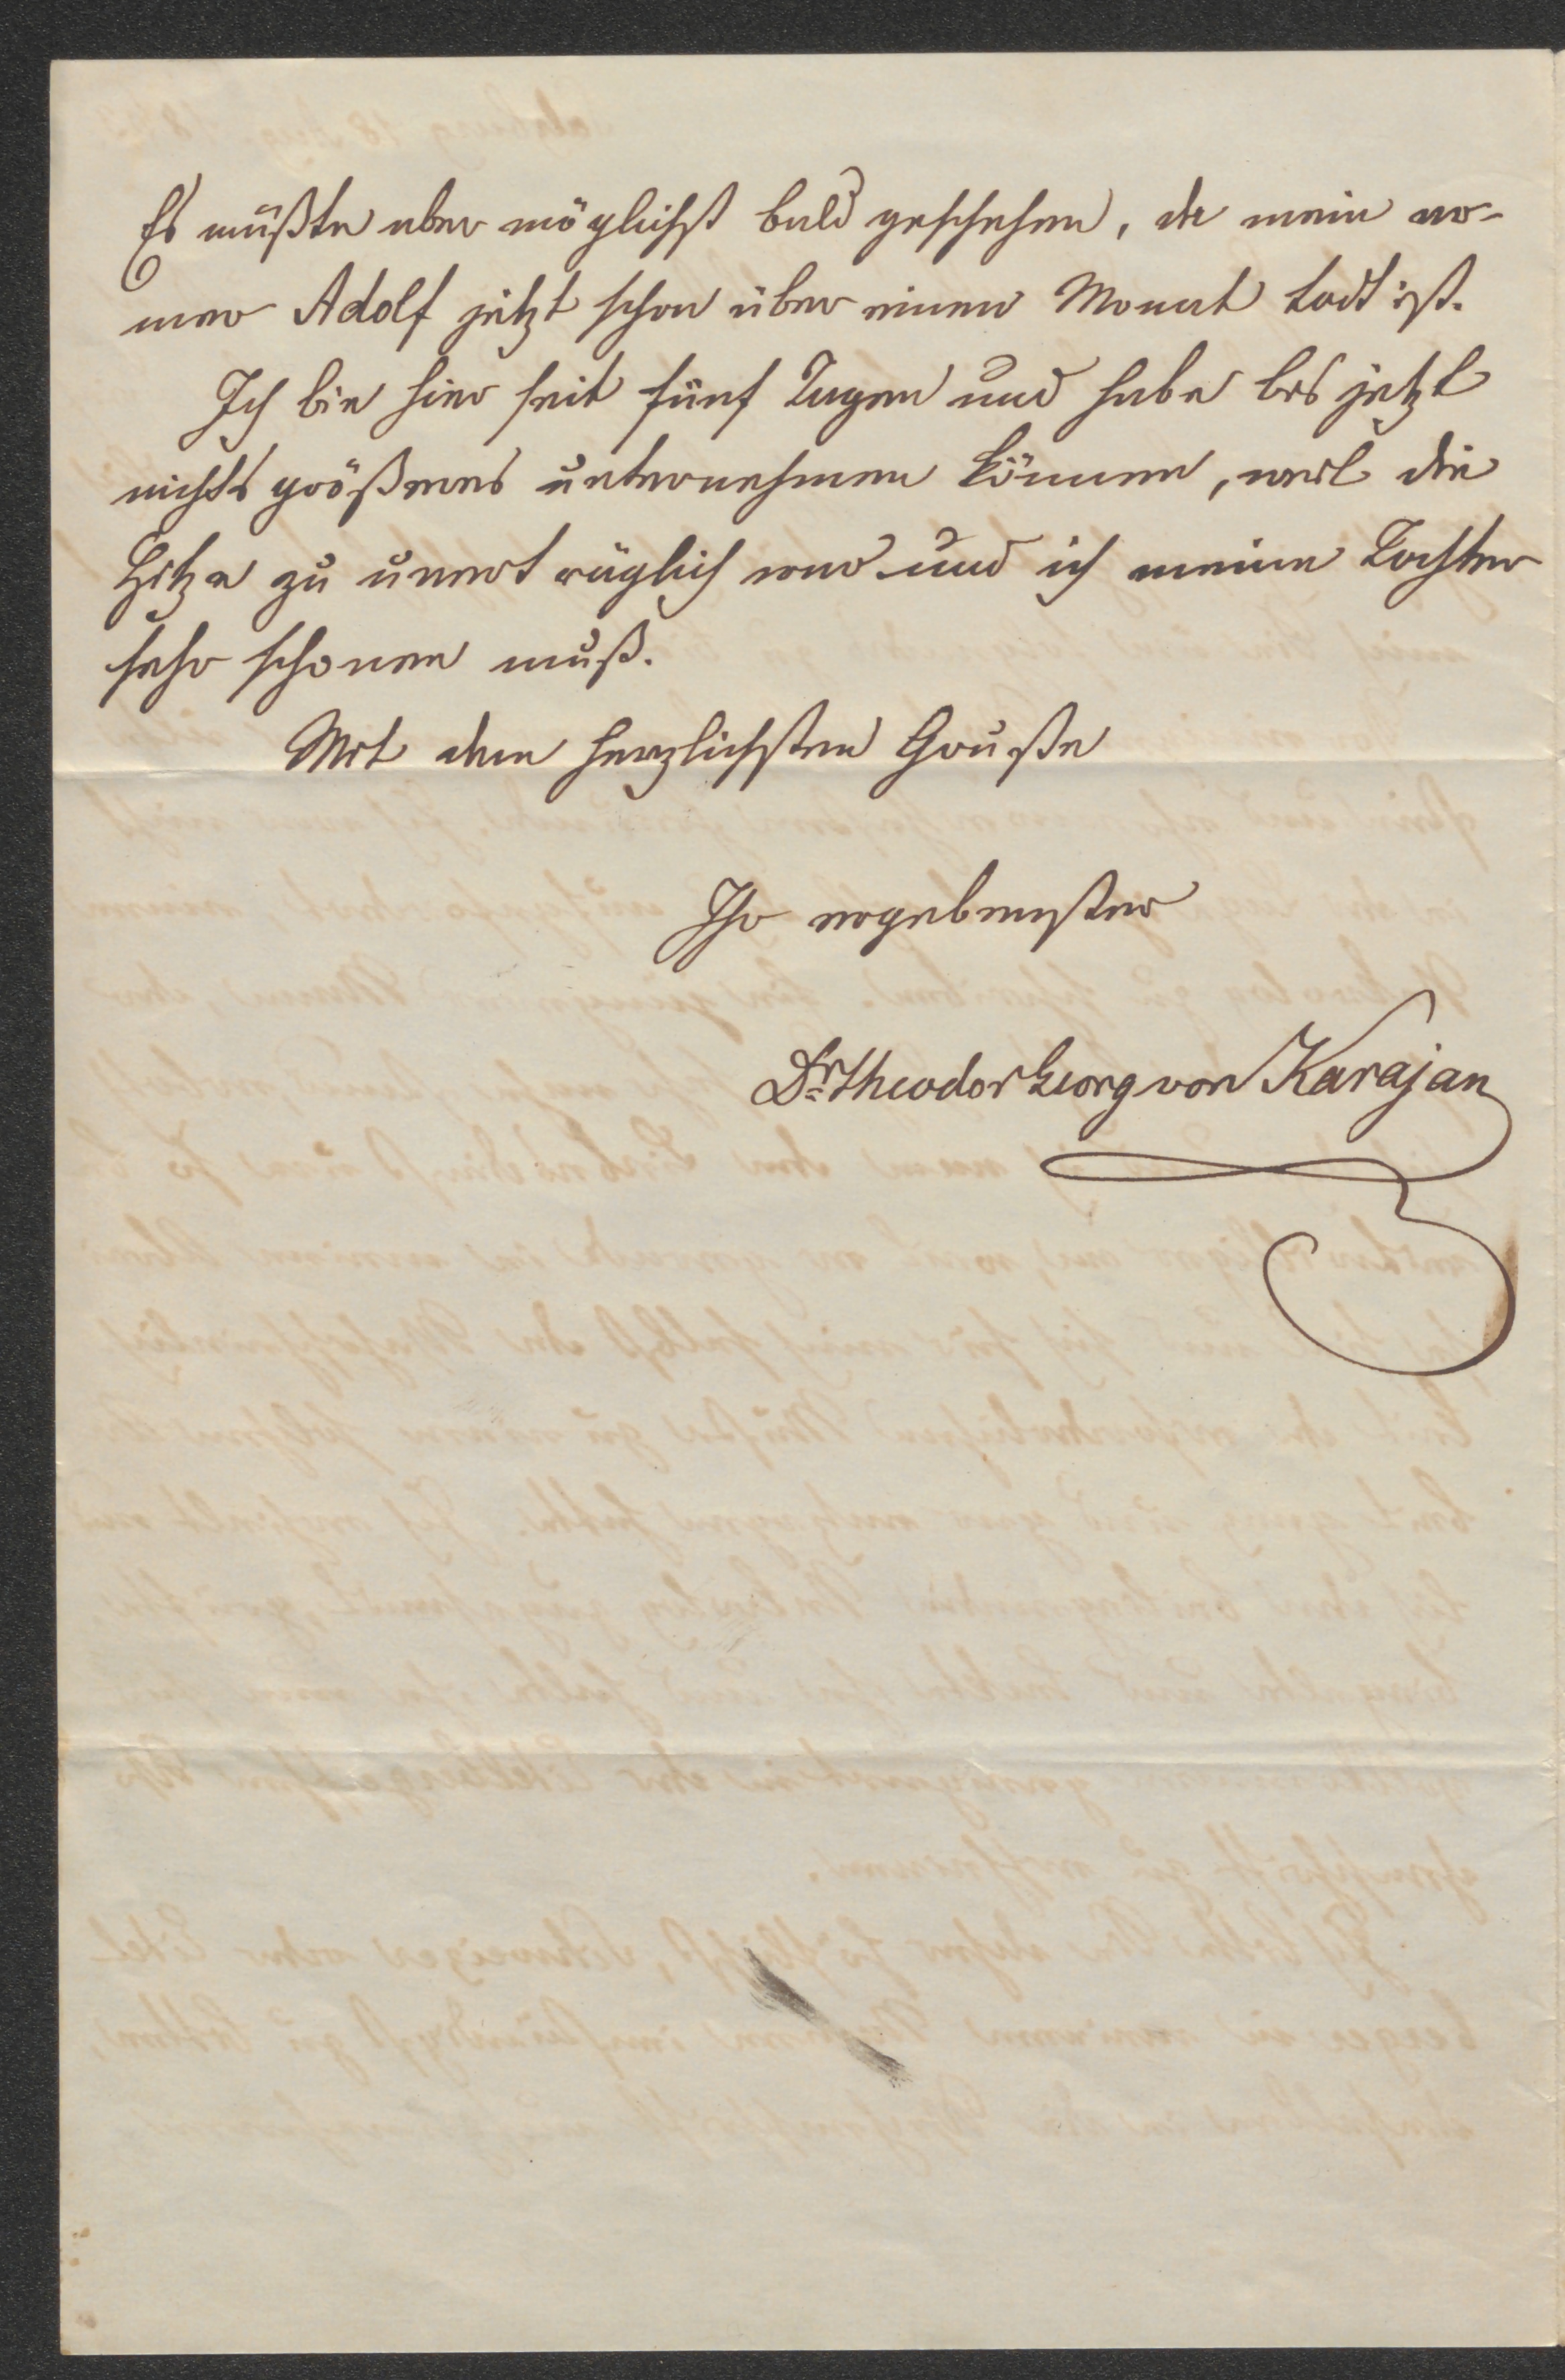 Es müßte aber möglichst bald geschehen, da mein ar-
mer Adolf jetzt schon über einen Monat todt ist.
Ich bin hier seit fünf Tagen und habe bis jetzt
nichts größeres unternehmen können, weil die
Hitze zu unerträglich war und ich meine Tochter
sehr schonen muß.
Mit dem herzlichsten Gruße
Ihr ergebenster
Dr. Theodor Georg von Karajan